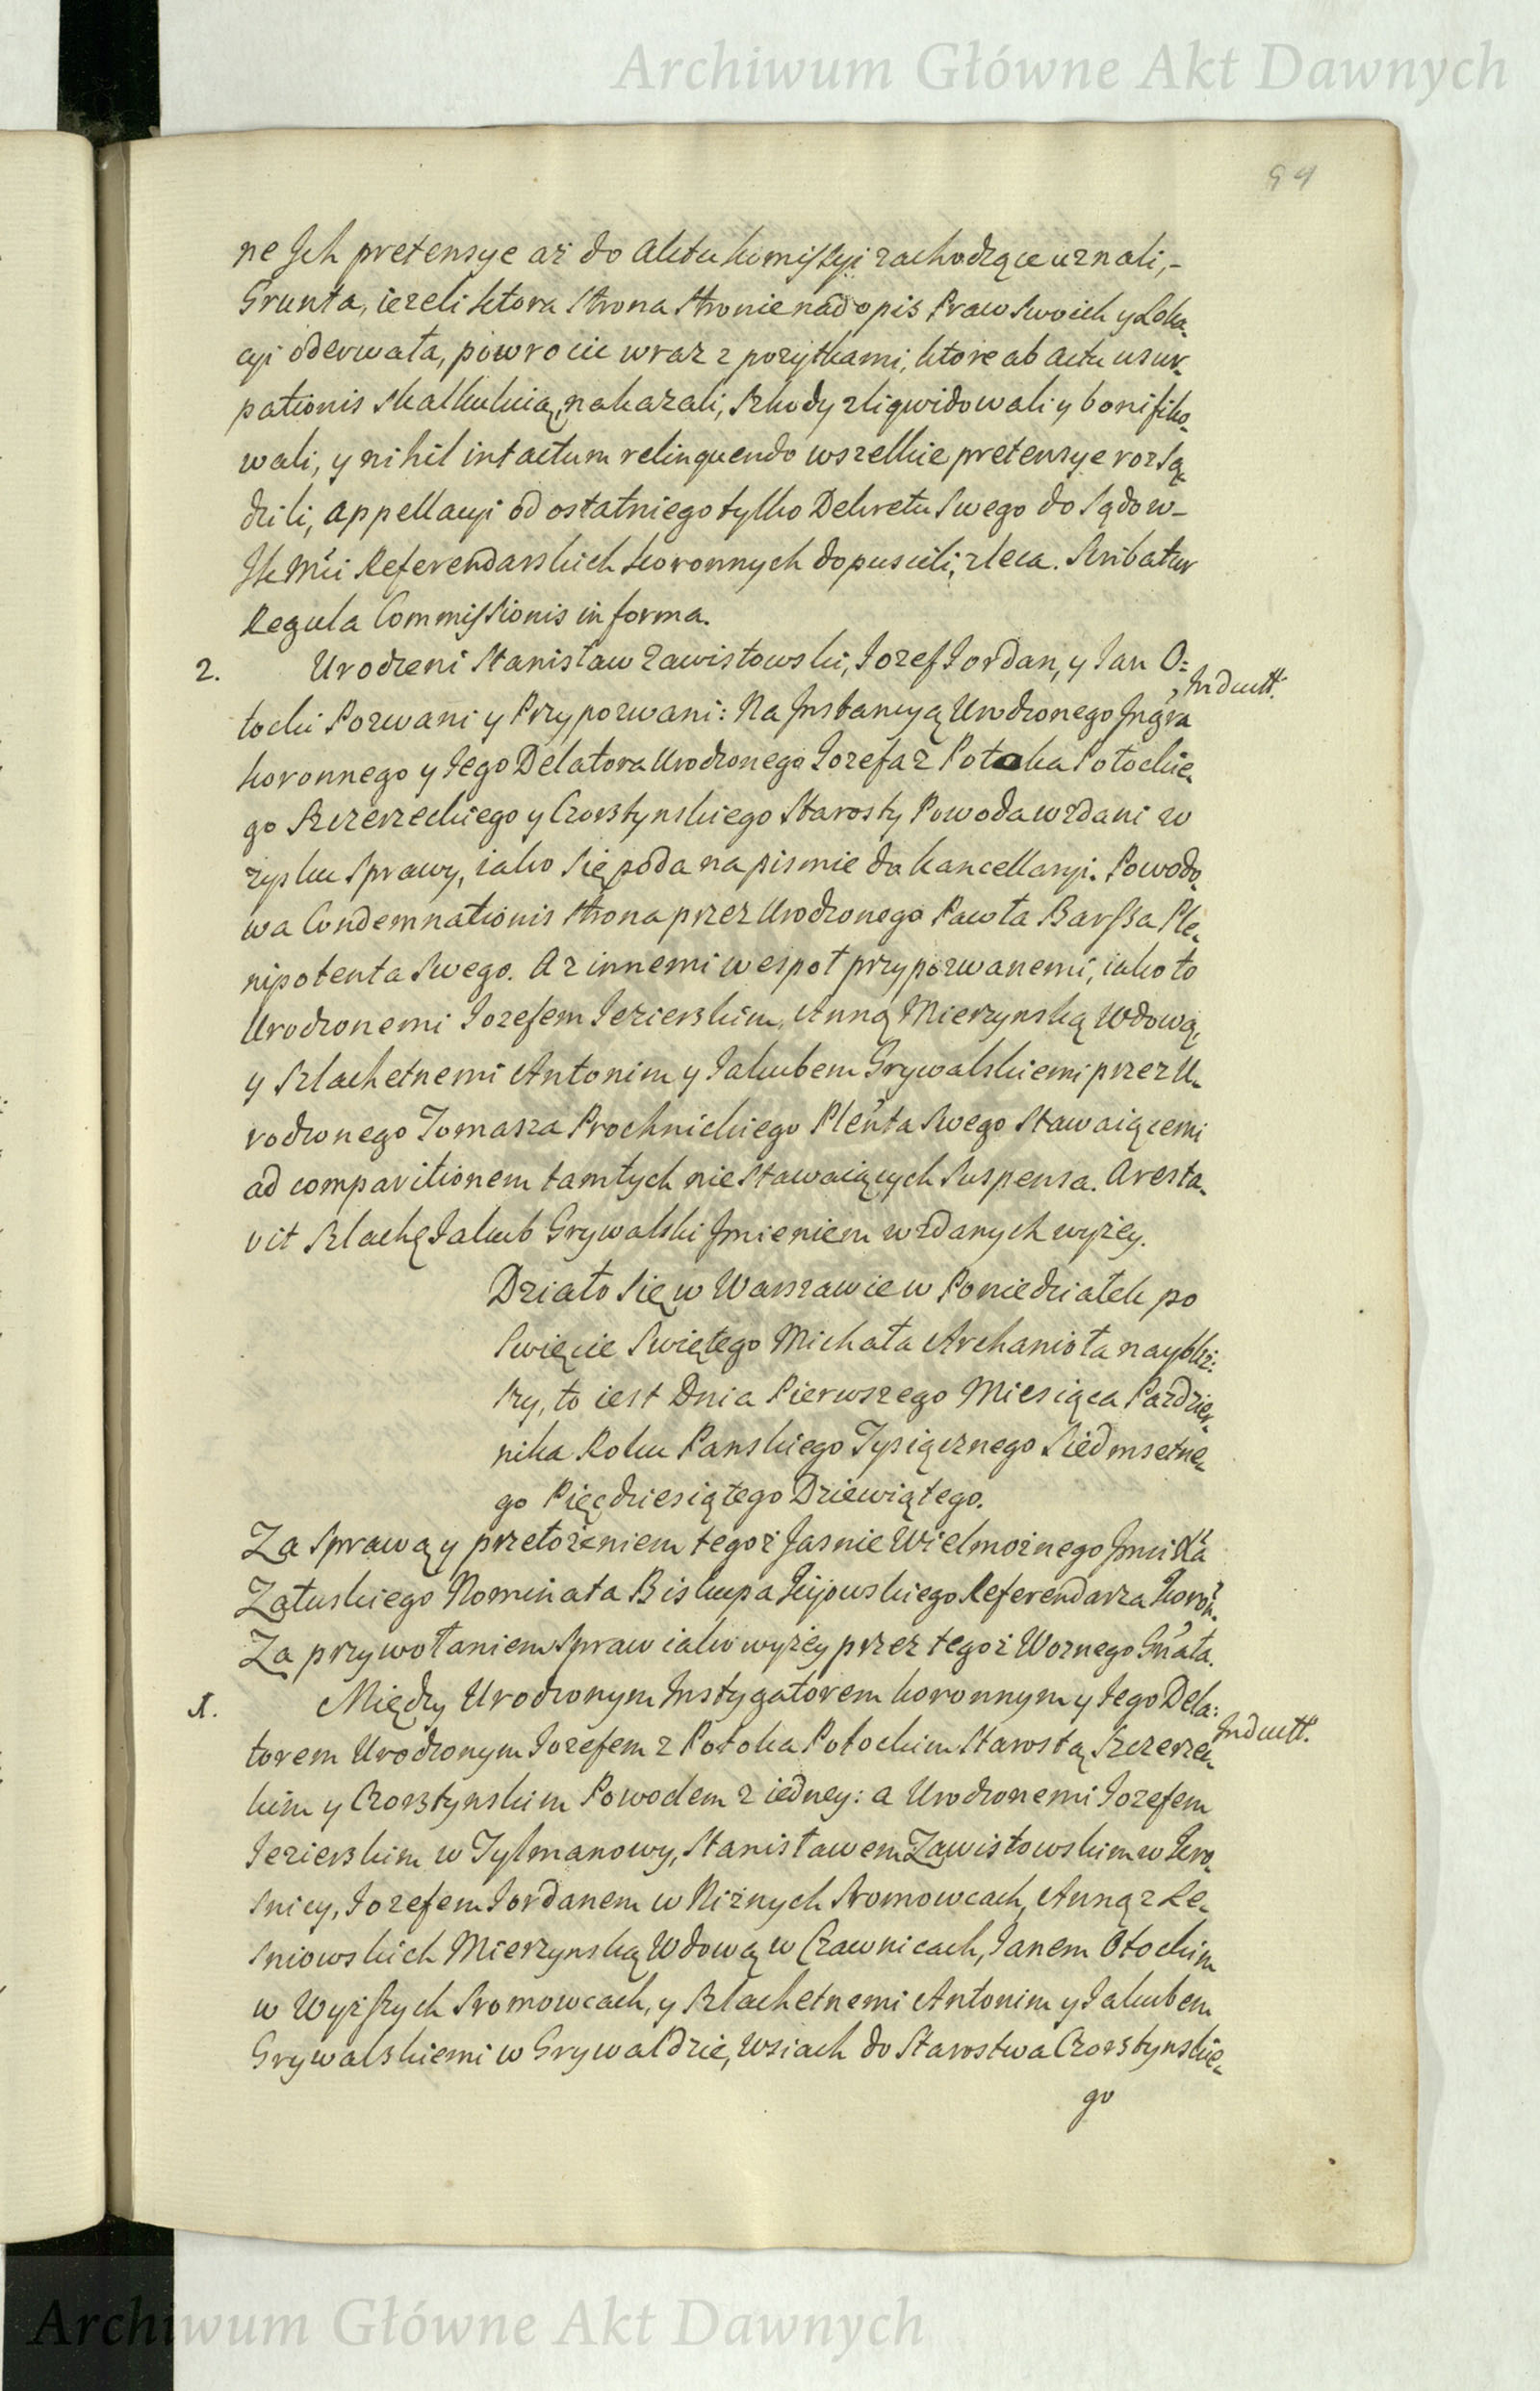 Archiwum Główne Akt Dawnych
94
ne Ich pretensye aż do Aktu Komissyi zachodzące uznali,-
Grunta, iezeli ktora Strona Stronie nad opis Praw Swoich y Loka-
cyi oderwała, powrocic wraz z pozytkami, ktore ab actu usur-
pationis skalkuluią, nakazali, Szkody zliqwidowali y bonifiko-
wali, y nihil intactum relinquendo wszelkie pretensye rozsą-
dzili, appellacyi od ostatniego tylko Dekretu Swego do Sądow-
Ik Mći Referendarskich Koronnych dopuscili, zleca. Scribatur
Regula Commissionis in forma.
2. Urodzeni Stanisław Zawistowski, Iozef Iordan, y Ian O=
Induct.
tocki Pozwani y Przypozwani: Na Instancyą Urodzonego Ingra
Koronnego y Iego Delatora Urodzonego Iozefa z Potoka Potockie-
go Szczerzeckiego y Czorsztynskiego Starosty Powoda wzdani w
zysku Sprawy, iako Się poda na pismie do Kancellaryi. Powodo-
wa Condemnationis Strona przez Urodzonego Pawła Barssa Ple-
nipotenta Swego. A z innemi wespoł przypozwanemi, iako to
Urodzonemi Iozefem Iezierskim, Anną Mierzynską Wdową,
y Szlachetnemi Antonim y Iakubem Grywalskiemi przez U-
rodzonego Tomasza Prochnickiego Pleńta Swego Stawaiącemi
ad comparitionem tamtych nie Stawaiących Suspensa. Aresta-
vit Szlachę Iakub Grywalski Imieniem wzdanych wyżey.
Działo Się w Warszawie w Poniedziałek po
Swięcie Swiętego Michała Archanioła nayblż:
szy, to iest Dnia Pierwszego Miesiąca Pazdzier-
nika Roku Panskiego Tysiącznego Siedmsetne-
go Pięćdziesiątego Dziewiątego.
Za Sprawą y przełożeniem tegoż Jasnie Wielmożnego Jmci Xa
Załuskiego Nominata Biskupa Kijowskiego Referendarza Koroń.
Za przywołaniem Spraw iako wyżey przez tegoż Woznego Gnała.
1. Między Urodzonym Instygatorem Koronnym y Iego Dela:
Induct.
torem Urodzonym Iozefem z Potoka Potockim Starostą Szczerzec-
kim y Czorsztynskim Powodem z iedney: a Urodzonemi Iozefem
Iezierskim w Tylmanowy, Stanisławem Zawistowskim w Kro-
snicy, Iozefem Iordanem w Niżnych Sromowcach, Anną z Le-
sniowskich Mierzynską Wdową w Czawnicach, Ianem Otockim
w Wyższych Sromowcach, y Szlachetnemi Antonim y Iakubem
Grywalskiemi w Grywaldzie, Wsiach do Starostwa Czorsztynskie-
go
Archiwum Główne Akt Dawnych